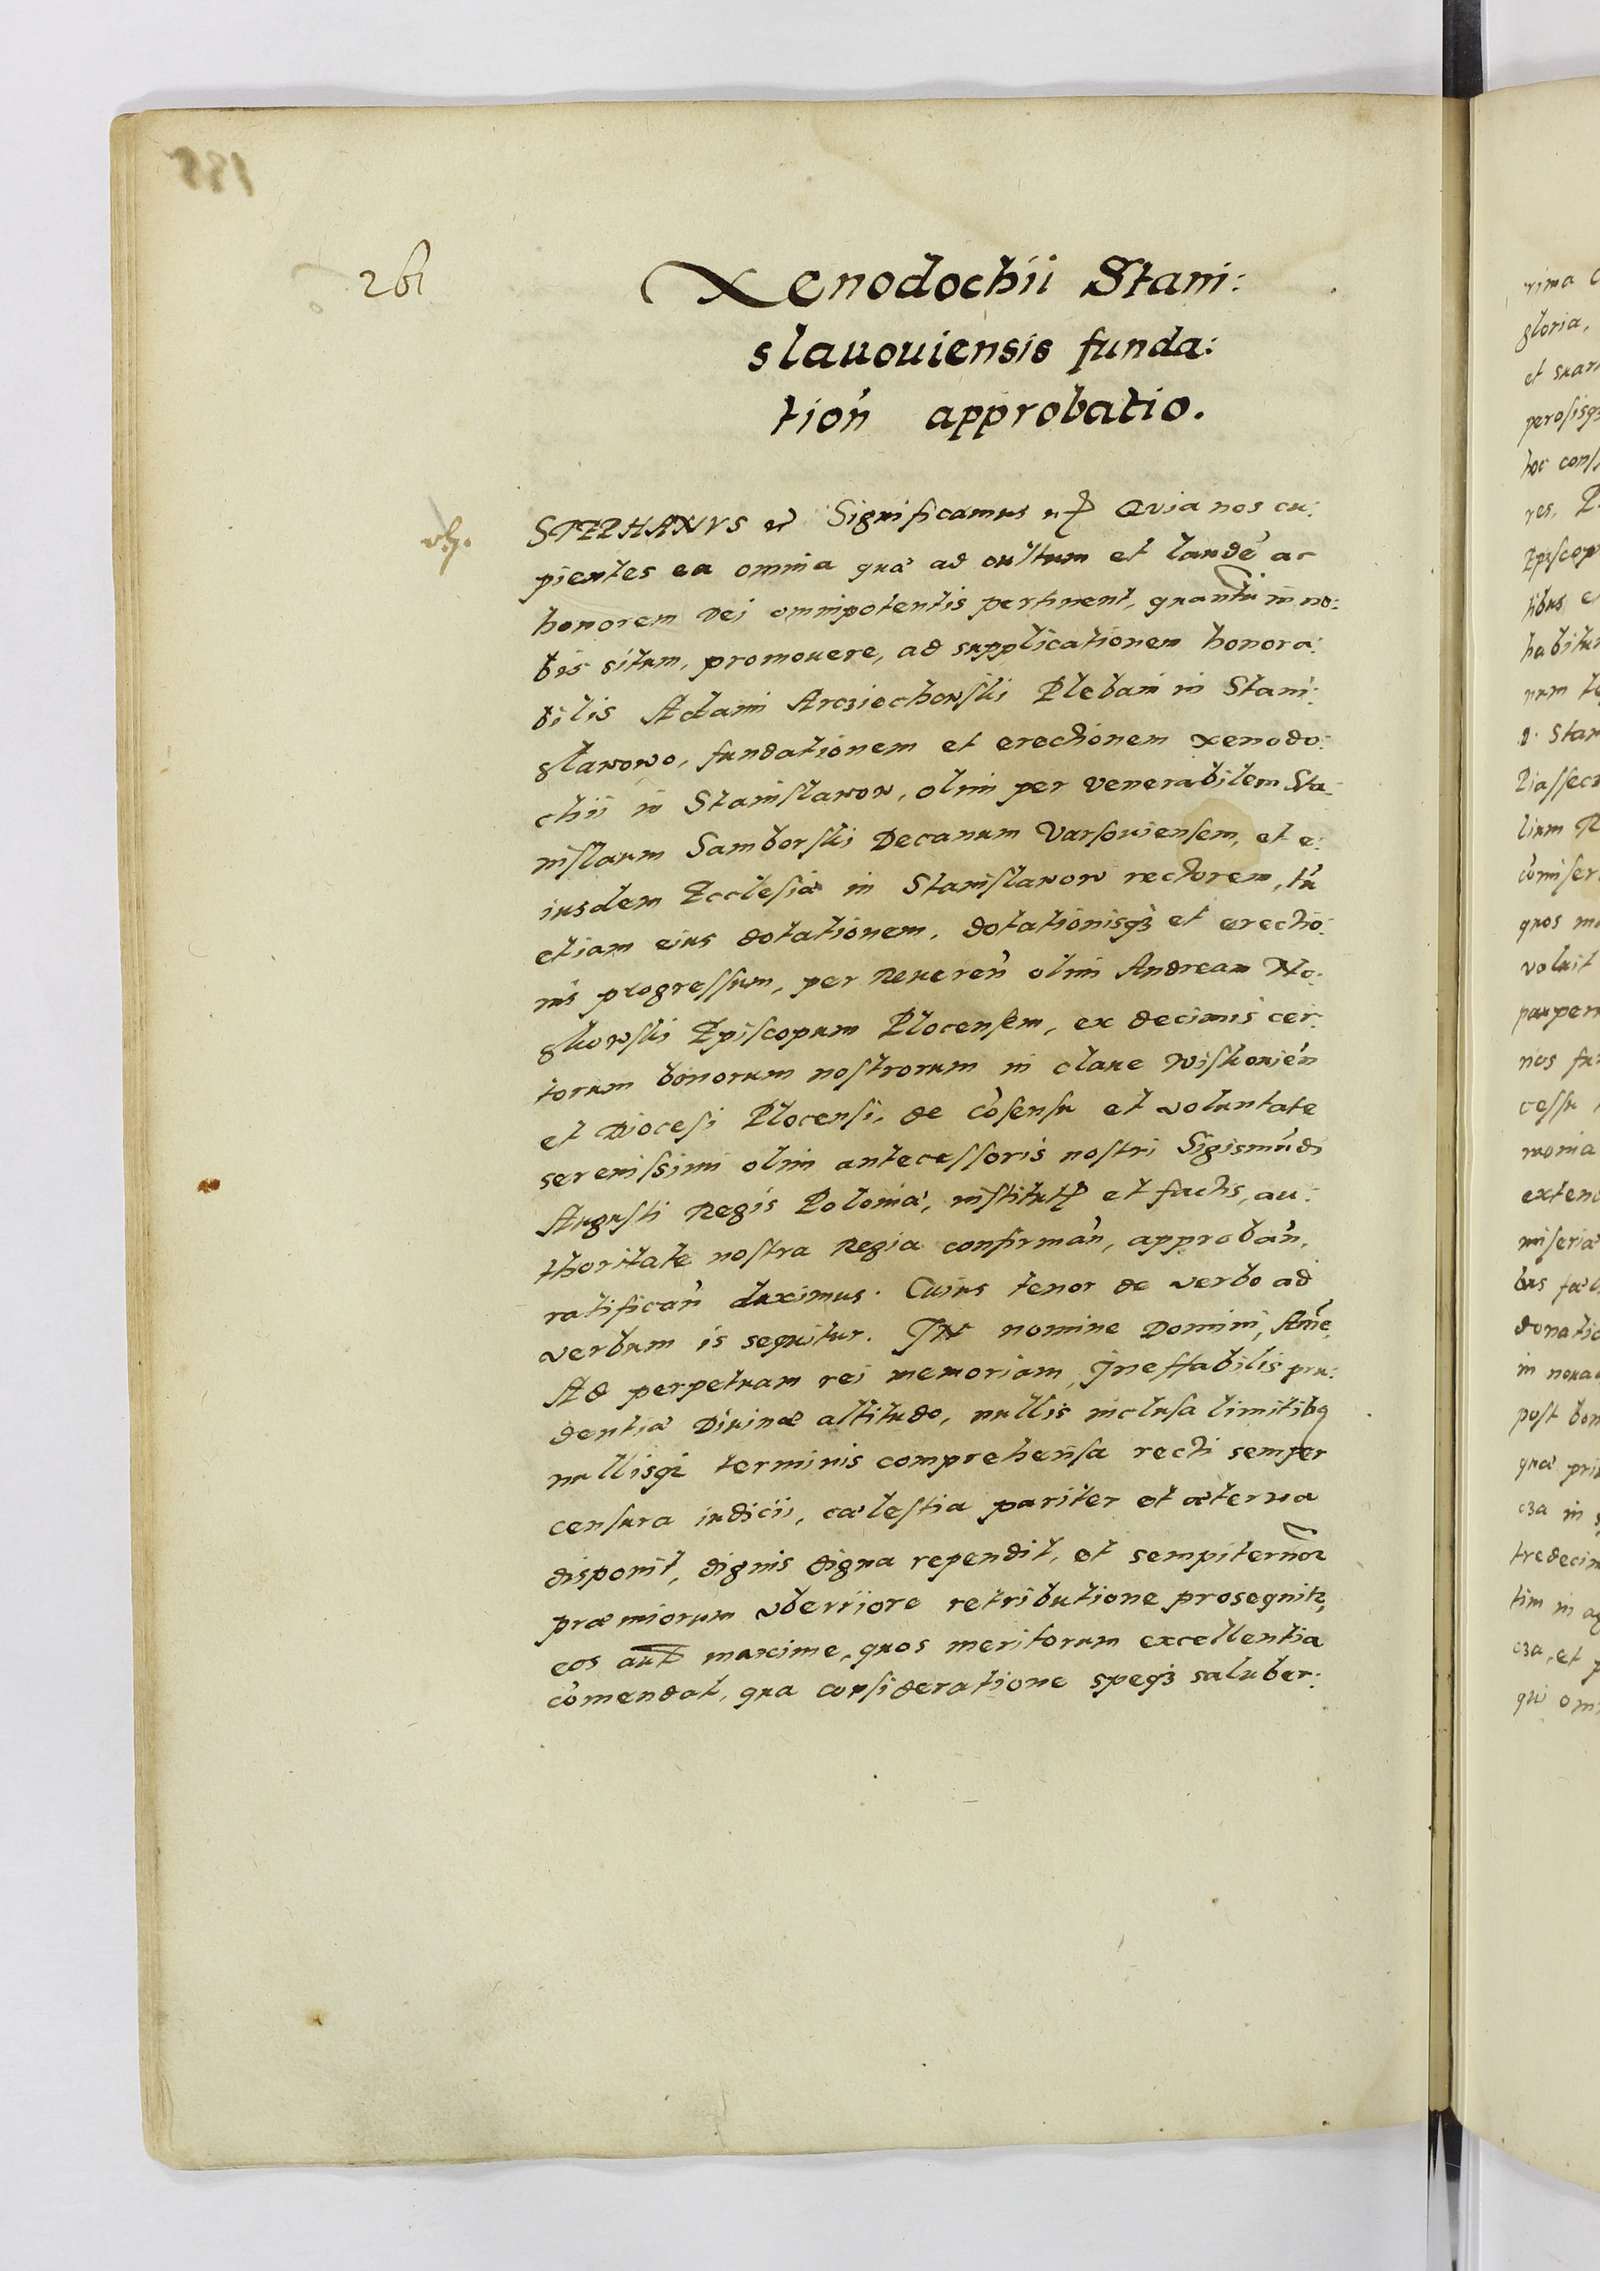 261
Xenodochii Stani:
slauouiensis funda:
tioń approbatio.
STEPHANVS etc Significamus etc Quia nos cu:
pientes ea omnia quæ ad cultum et laudẽ ac
honorem Dei omnipotentis pertinent, quantũ in no:
bis situm, promouere, ad supplicationem honora:
bilis Adami Arciechowski Plebani in Stani:
slawowo, fundationem et erectionem xenodo:
chii in Stanislawow, olim per venerabilem Sta:
nislaum Samborski Decanum Varsouiensem, et e:
iusdem Ecclesiæ in Stanislawow rectorem, tũ
etiam eius dotationem, dotationisqз et erectio:
nis progressum, per Reueren̄ olim Andream No:
skowski Episcopum Plocensem, ex decimis cer:
torum bonorum nostrorum in claue Wiskouien̄
et Diocesi Plocensi, de cõsensu et voluntate
serenissimi olim antecessoris nostri Sigismũdi
Augusti Regis Poloniæ, institutis et factis, au:
thoritate nostra Regia confirman̄, approban̄,
ratifican̄ duximus. Cuius tenor de verbo ad
verbum is sequitur. IN nomine Domini, Amẽ,
Ad perpetuam rei memoriam, Ineffabilis pru:
dentiæ Diuinæ altitudo, nullis inclusa limitibꝰ
nullisqз terminis comprehensa recti semper
censura iudicii, cælestia pariter et æterna
disponit, dignis digna rependit, et sempiternoꝝ
præmiorum vberiiore retributione prosequitꝛ,
eos aut̃ maxime, quos meritorum excellentia
cõmendat, qua consideratione speqз saluber:
rima
gloria,
perosisqз
res, P.
Episcop
tibus e
D. Stan
quos
voluit
nos fu
cessu
miseriæ
donatio
post bon
tredecim